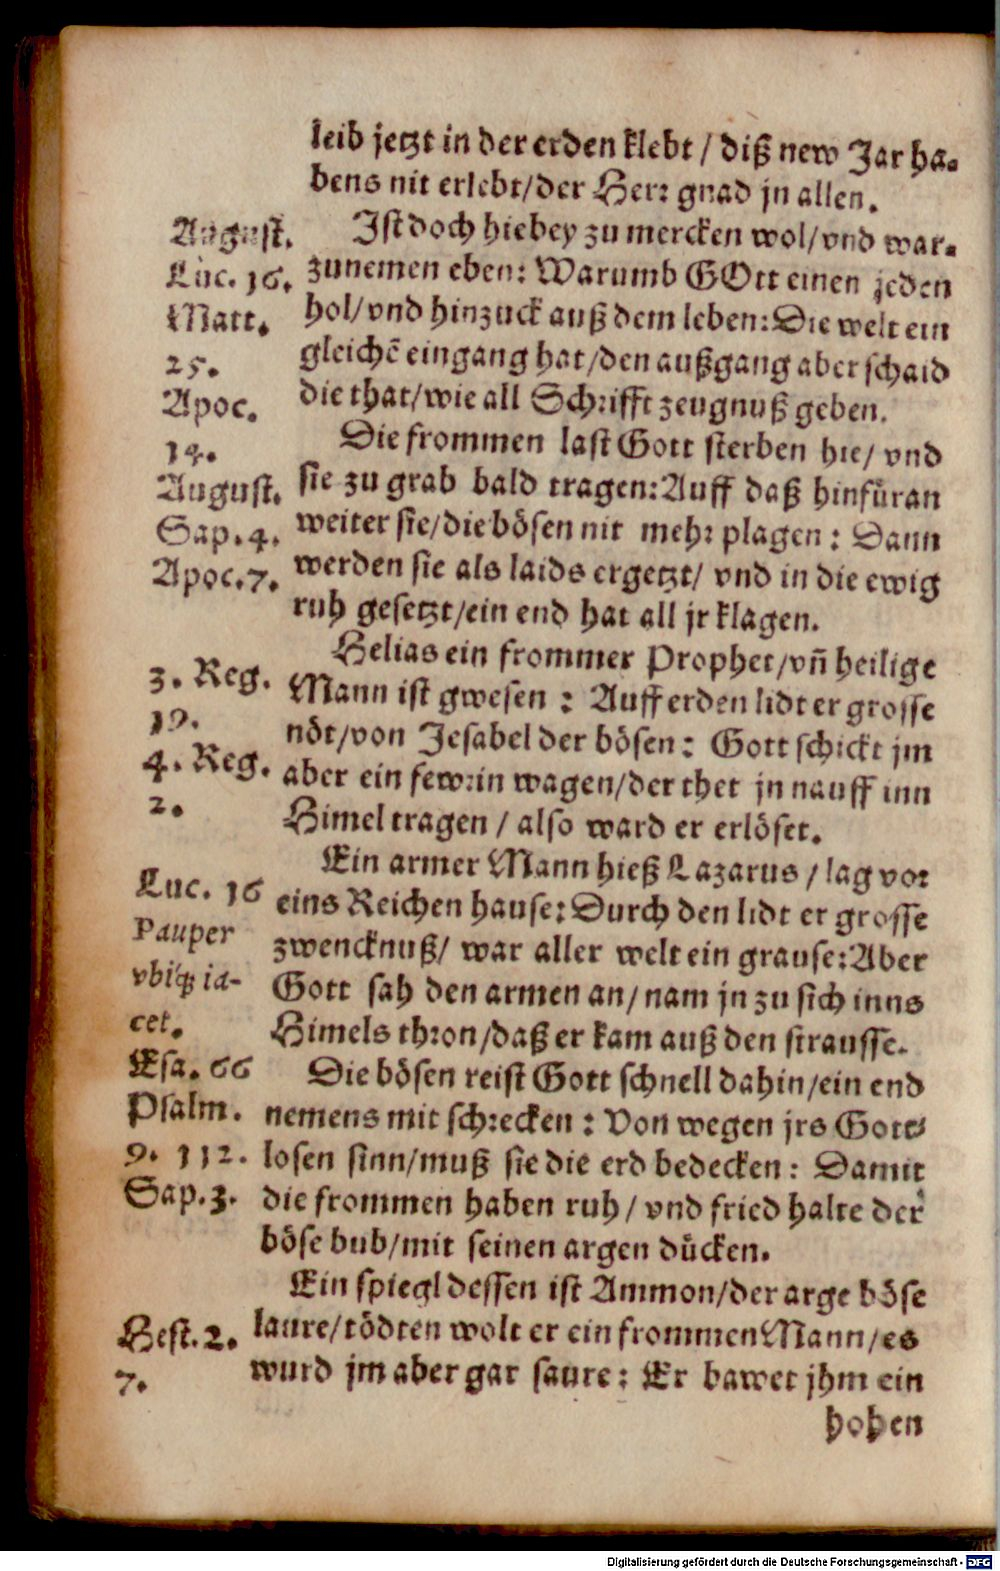 leib jetzt in der erden klebt / diß new Jar ha-
bens nit erlebt/der Herr gnad jn allen.
August.
Luc. 16.
Matt.
25.
Apoc.
14.
August.
Sap. 4.
Apoc. 7.
Ist doch hiebey zu mercken wol/vnd war-
zunemen eben: Warumb GOtt einen jeden
hol/vnd hinzuck auß dem leben: Die welt ein
gleichē eingang hat/den außgang aber schaid
die that/wie all Schrifft zeugnuß geben.
Die frommen last Gott sterben hie/ vnd
sie zu grab bald tragen: Auff daß hinfüran
weiter sie/die bösen nit mehr plagen: Dann
werden sie als laids ergetzt/ vnd in die ewig
ruh gesetzt/ein end hat all jr klagen.
3. Reg.
19.
4. Reg.
2.
Helias ein frommer Prophet/vñ heilige
Mann ist gwesen: Auff erden lidt er grosse
nöt/von Jesabel der bösen: Gott schickt jm
aber ein fewrin wagen/der thet jn nauff inn
Himel tragen / also ward er erlöset.
Luc. 16
Pauper
vbiq́ꝫ ia-
cet.
Ein armer Mann hieß Lazarus / lag vor
eins Reichen hause: Durch den lidt er grosse
zwencknuß/ war aller welt ein grause: Aber
Gott sah den armen an/ nam jn zu sich inns
Himels thron/daß er kam auß den strausse.
Esa. 66
Psalm.
9. 112.
Sap. 3.
Die bösen reist Gott schnell dahin/ein end
nemens mit schrecken: Von wegen jrs Gott-
losen sinn/muß sie die erd bedecken: Damit
die frommen haben ruh/ vnd fried halte der
böse bub/mit seinen argen dücken.
Hest. 2.
7.
Ein spiegl dessen ist Ammon/der arge böse
laure/tödten wolt er ein frommen Mann/es
wurd jm aber gar saure: Er bawet jhm ein
hohen
Digitalisierung gefördert durch die Deutsche Forschungsgemeinschaft - DFG